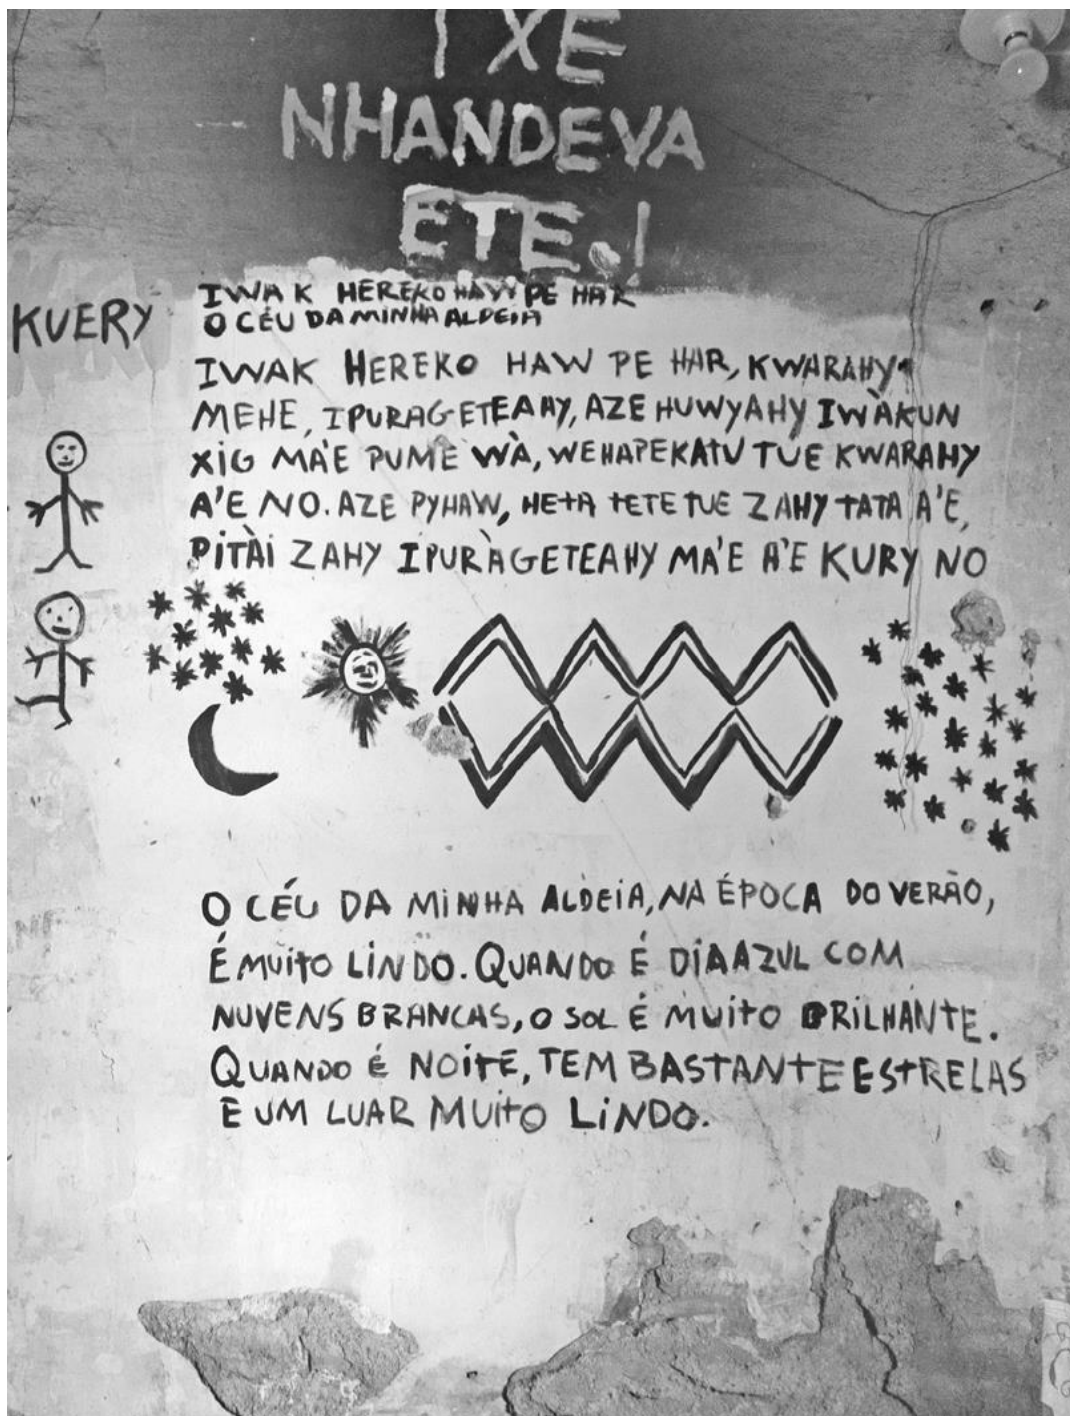 IXE
NHANDEVA
ETE.!
KUERY
IWAK HEREKO HAW PE HAR
O CÉU DA MINHA ALDEIA
IWAK HEREKO HAW PE HAR, KWARAHY
MEHE, IPURAGETEAHY, AZE HUWYAHY IWÀKUN
XIG MA'E PUME WÀ, WEHAPEKATU TUE KWARAHY
A'E NO. AZE PYHAW, HETA TETE TUE ZAHY TATA A'E,
PITÀI ZAHY IPURÀGETEAHY MA'E A'E KURY NO
O CÉU DA MINHA ALDEIA, NA ÉPOCA DO VERÃO,
É MUITO LINDO. QUANDO É DIA AZUL COM
NUVENS BRANCAS, O SOL É MUITO BRILHANTE.
QUANDO É NOITE, TEM BASTANTE ESTRELAS
E UM LUAR MUITO LINDO.